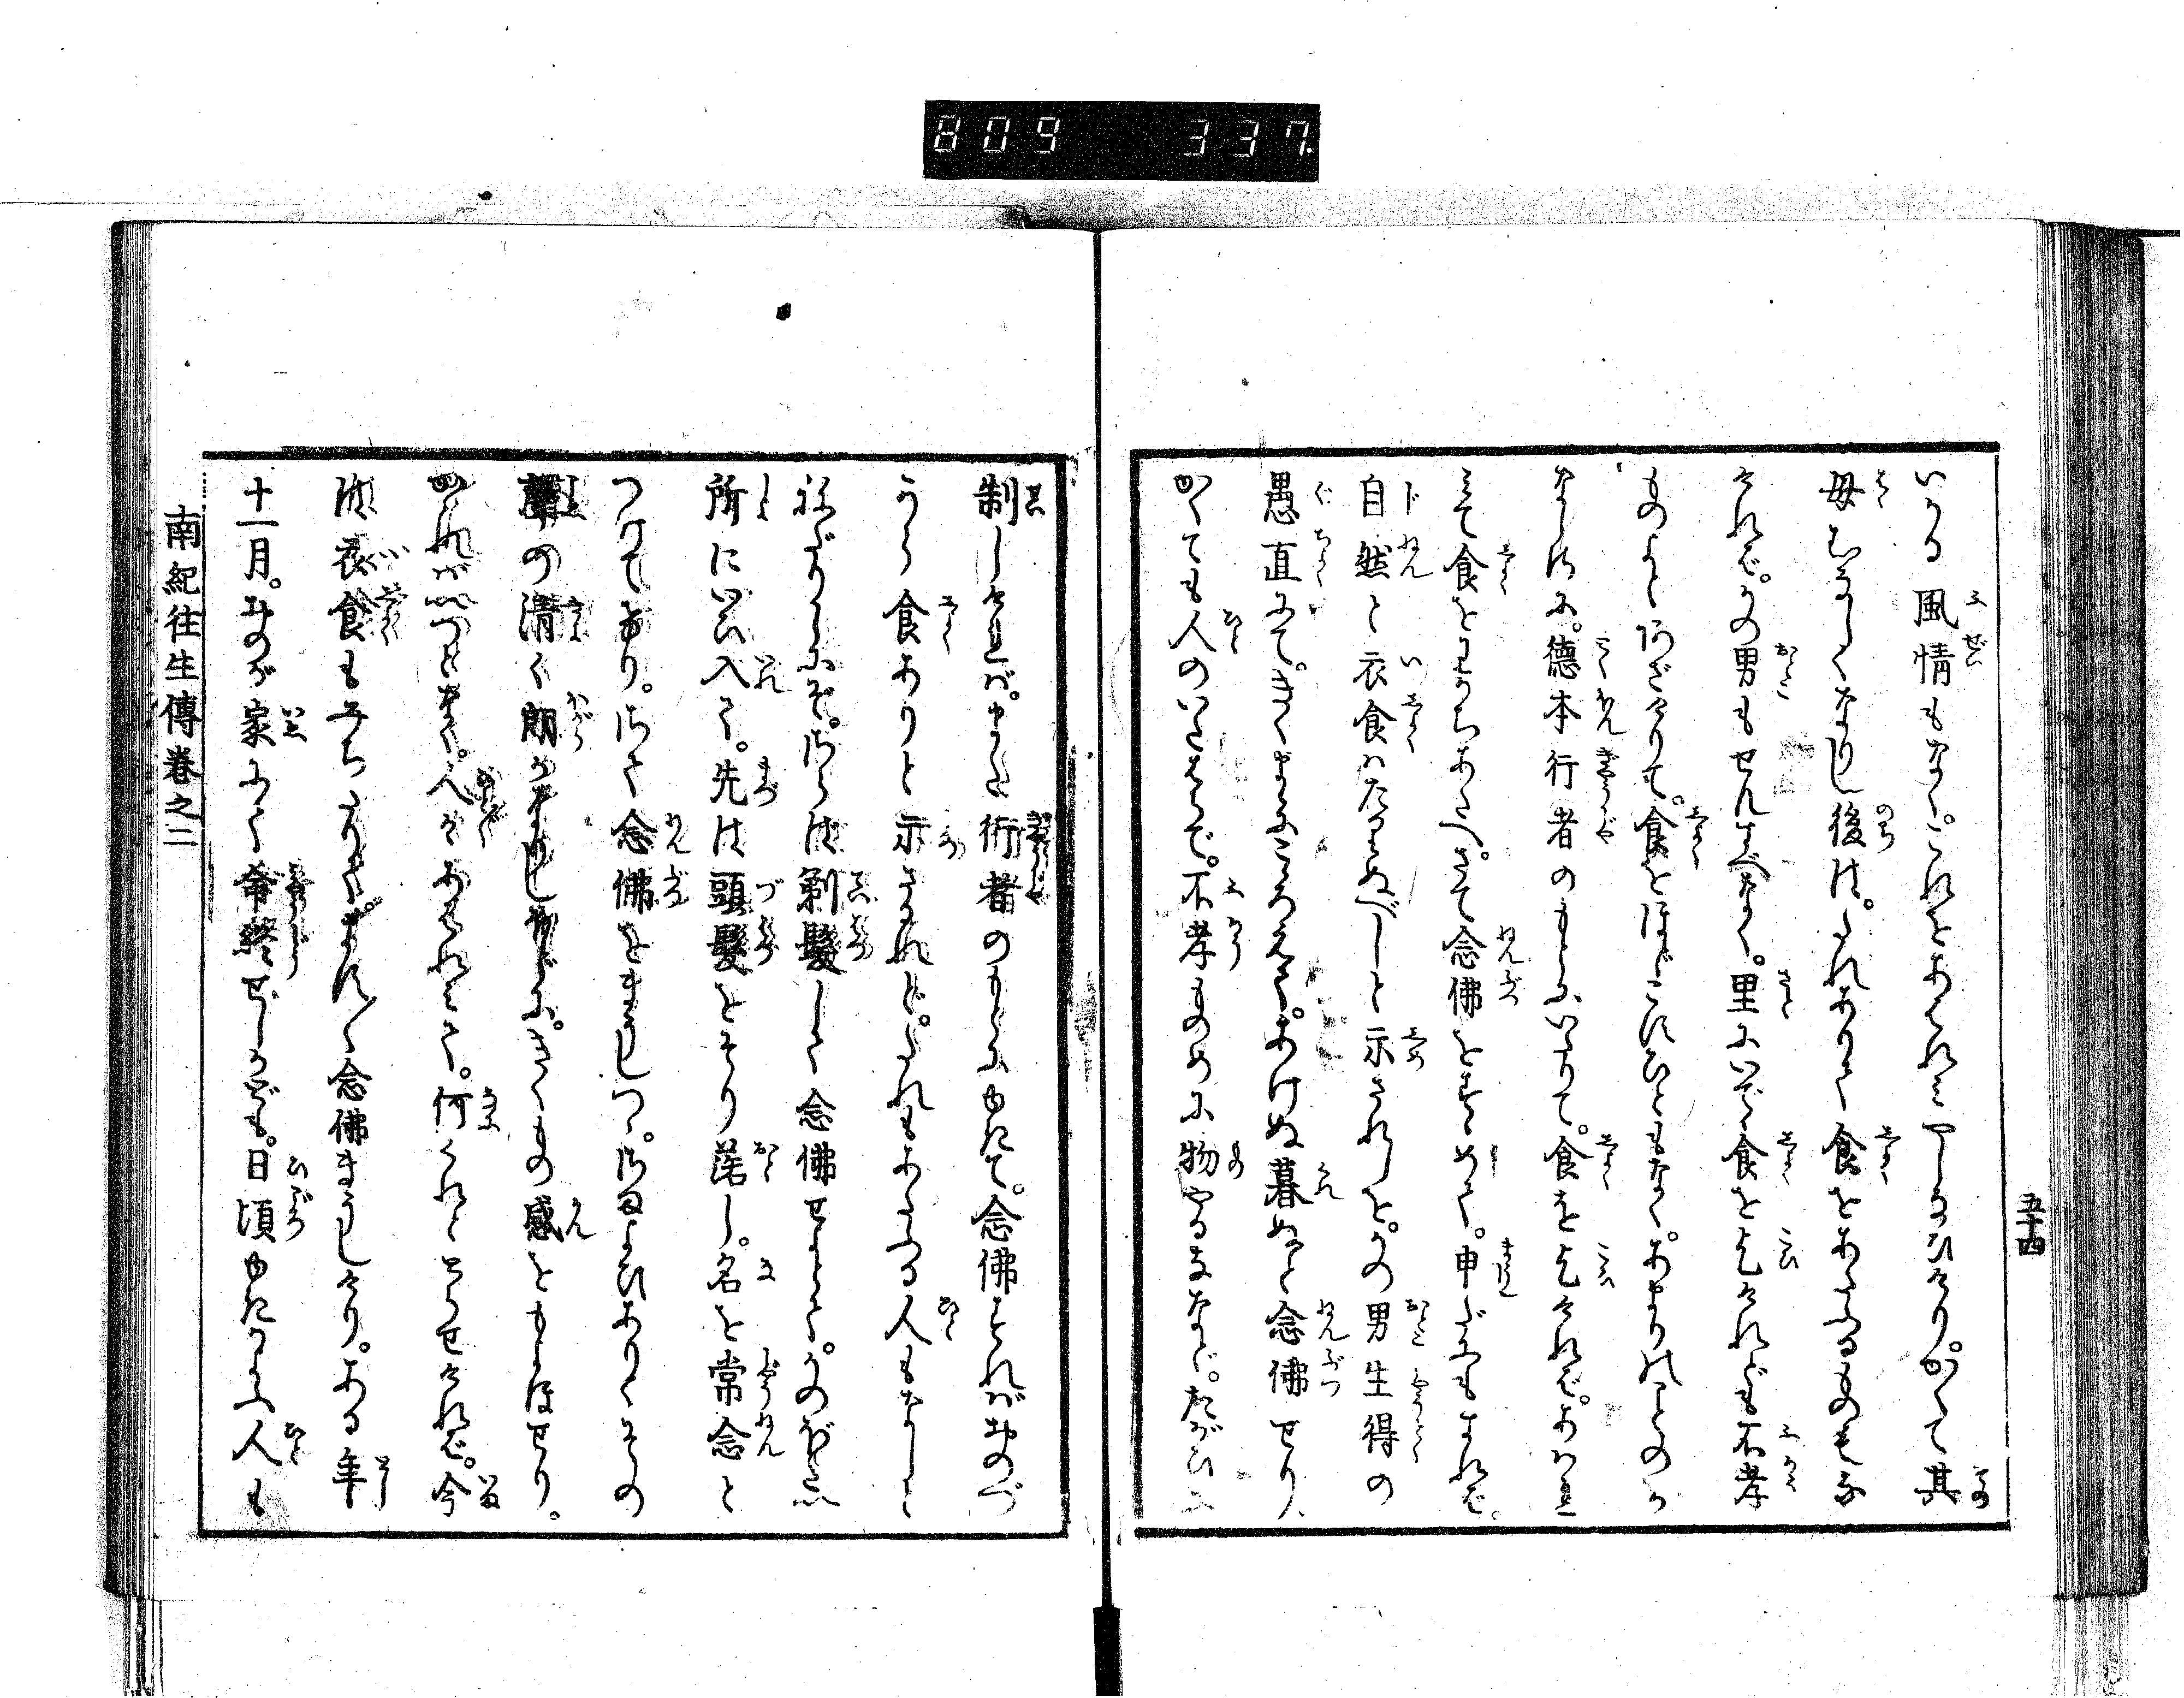 809 337
いかる風情もなくこれをあはれみやしなひけり。かくて其
母むなしくなりし後は。たれありて食をあたふるものもな
ければ。かの男もせんすべなく。里にいでゝ食を乞けれども不孝
ものよとあざけりて。食をほどこすひともなく。あまりのことのか
なしさに。徳本行者のもとにいたりて。食を乞ければ。あはれ
みて食をわかちあたへ。さて念佛をすゝめて。申だにもすれば。
自然と衣食はたりぬべしと示されしを。かの男生得の
愚直にて。きくまゝにこゝろえて。あけぬ暮ぬと念佛せり
かくても人のいふやうで。不孝ものめに物やるななど。たがひに
五十四
制しければ。また行者のもとにゆきて。念佛すればおのづ
から食ありと示されしかど。たれもあたふる人もなしと
ねがふにぞ。さらば剃髪して念佛せよとて。かのぼだい
所にいひ入て。先は頭髪をそり落し。名を常念と
つけてけり。さて念佛をまうしつゝ。さまよひありくその
聲の清く朗かなりしほどに。きくもの感をもよほせり。
かれがいつとなく。人々あはれみて。何くれととらせければ。今
は衣食もみちたりて。ますます念佛まうしけり。ある年
十一月。おのが家にて命終せしかども。日頃ゆきかふ人も
南紀往生傳巻之二